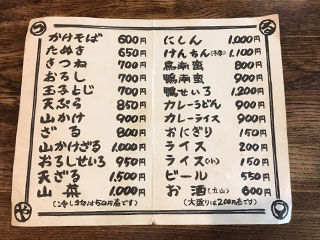 つ
る
かけそば 600円
たぬき 650円
きつね 700円
おろし 700円
玉子とじ 700円
天ぷら 850円
山かけ 900円
ざる 800円
山かけざる 1,000円
おろしせいろ 950円
天ざる 1,500円
山菜 1,000円
にしん 1,000円
けんちん(冬季) 1,100円
鳥南蛮 800円
鴨南蛮 900円
鴨せいろ 1,200円
カレーうどん 900円
カレーライス 900円
おにぎり 150円
ライス 200円
ライス(小) 150円
ビール 550円
お酒(立山) 600円
(大盛りは200円増です)